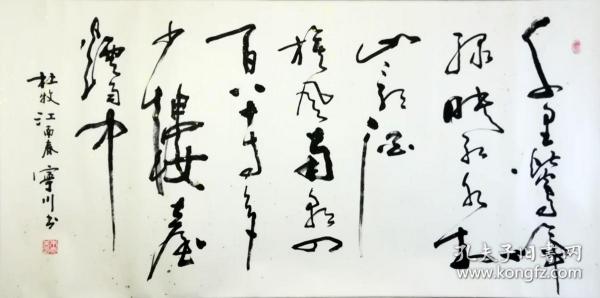 千里鶯啼
绿映红水村
山郭酒
旗风南朝四
百八十寺多
少樓臺
煙雨中
杜牧江南春 寧川书
孔夫子旧书网
www.kongfz.com